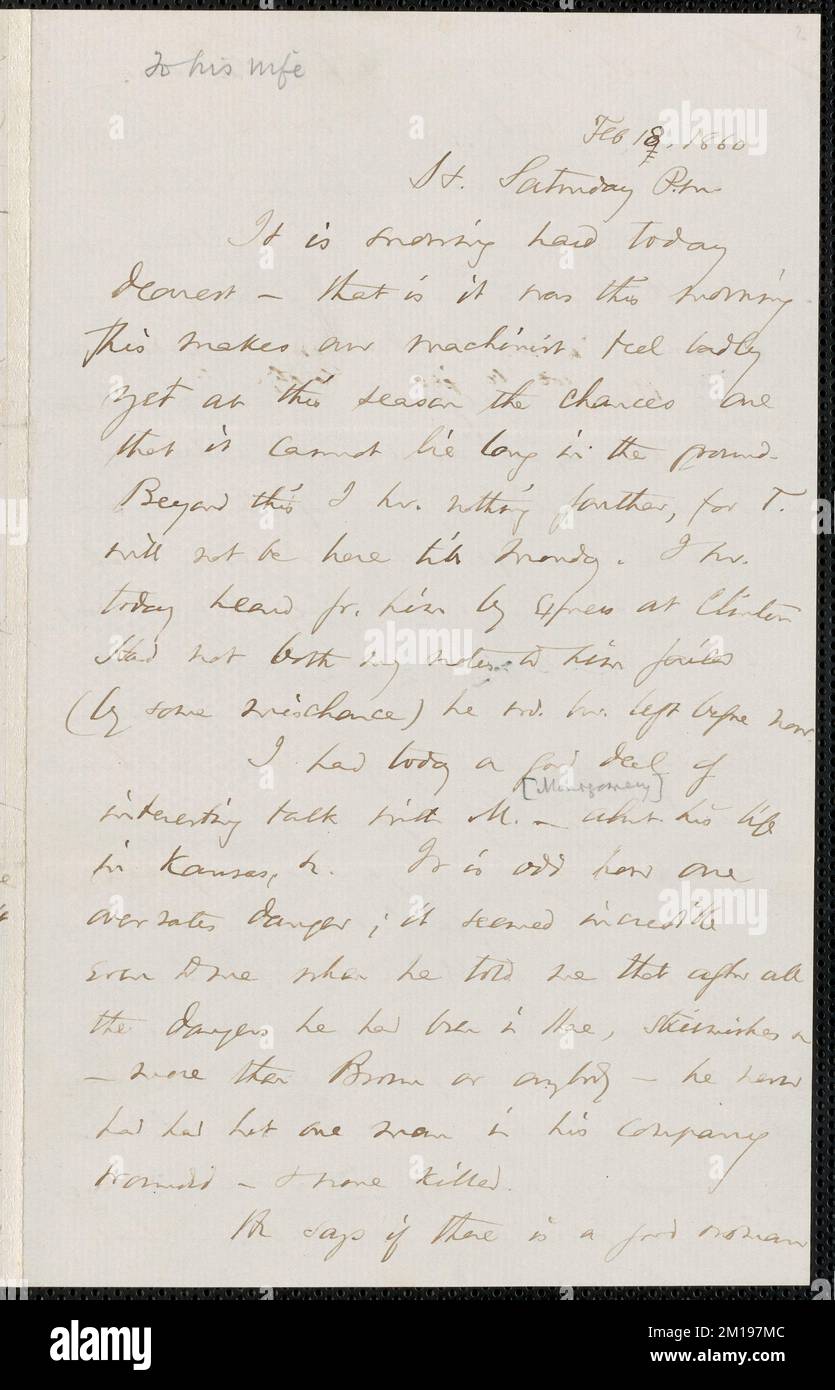 To his wife
2
Feb 18, 1860
H. Saturday P.M.
It is snowing hard today
dearest – that is it was this morning
This makes our machinist feel badly
yet at this season the chances are
that it cannot lie long in the ground.
Beyond this I hv. nothing farther, for T.
will not be here till Monday. I hv.
today heard fr. him by Express at Clinton
Had not both my notes to him failed
(by some mischance) he wd. hv. left before now.
I had today a good deal of
[Montgomery]
interesting talk with M. – about his life
in Kansas, &c. It is odd how one
overrates danger; it seemed incredible
even to me when he told me that after all
the dangers he had been in there, skirmishes &c
– more than Brown or anybody – he never
had had but one man in his company
wounded – & none killed.
He says if there is a good woman
alamy
a
Image ID: 2M197MC
www.alamy.com